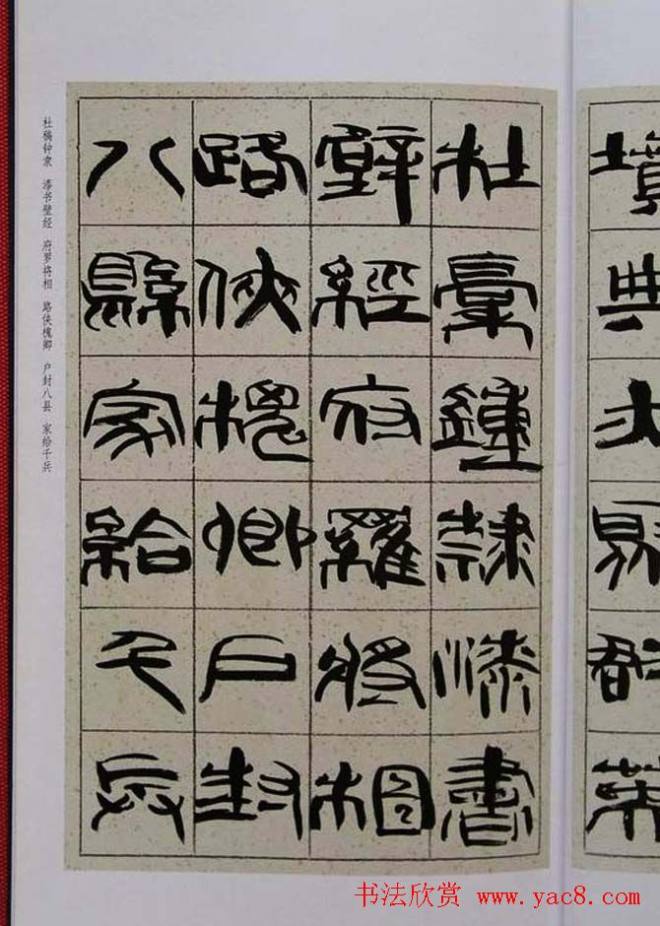 杜稾鍾隸漆書
壁經府羅將相
路俠槐卿戶封
八縣家給千兵
杜稿钟隶 漆书壁经 府罗将相 路侠槐卿 户封八县 家给千兵
典
群
书法欣赏 www.yac8.com